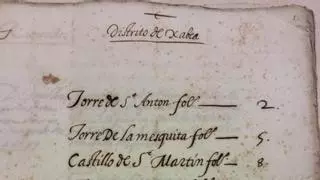 Distrito de Xabea
Torre de Sⁿ Anton folˢ — 2.
Torre De la mesquita folˢ — 5.
Castillo de Sⁿ Martin folˢ — 8